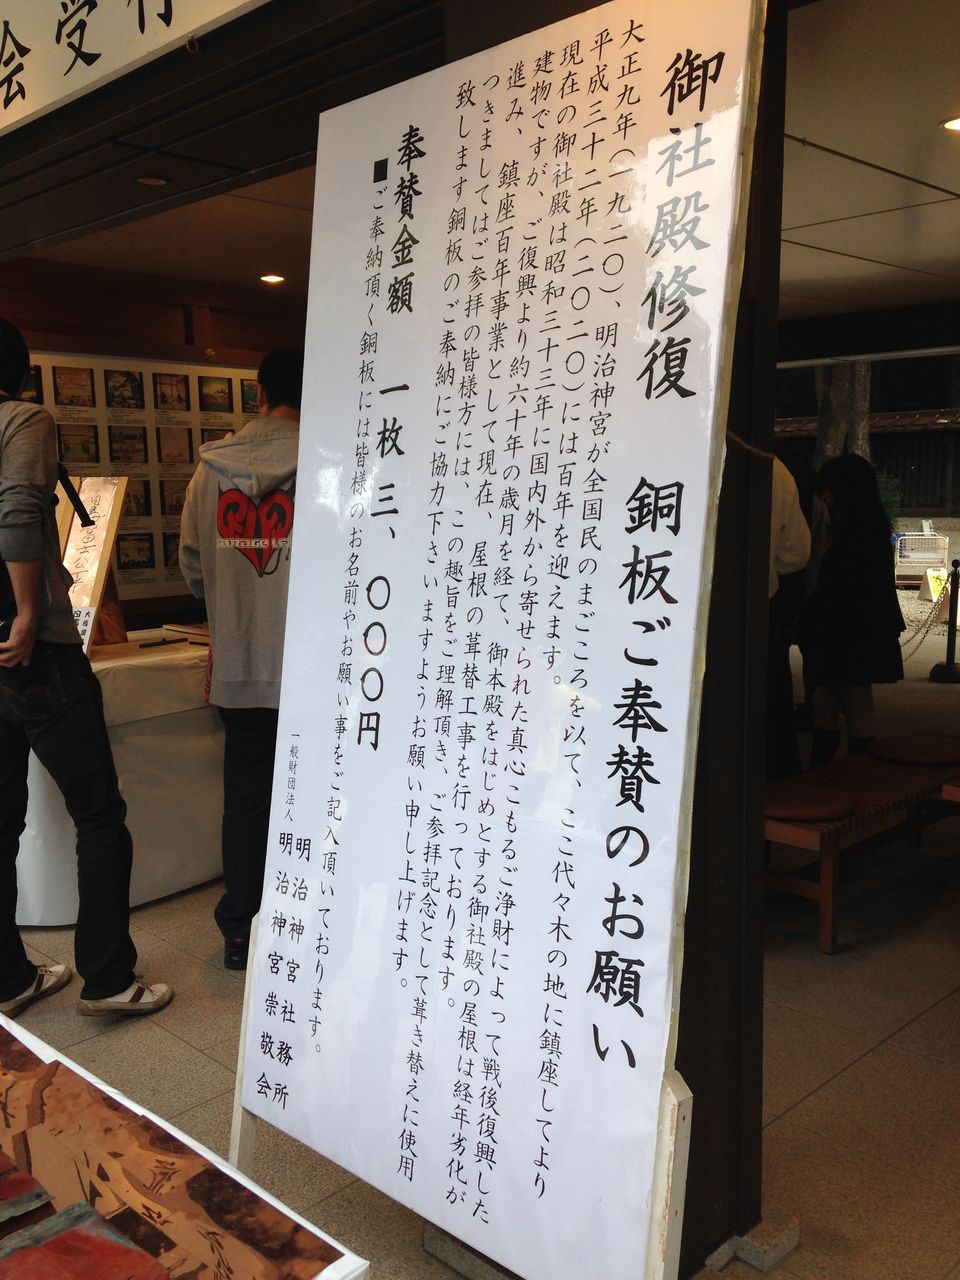 御社殿修復 銅板ご奉賛のお願い
大正九年(一九二〇)、明治神宮が全国民のまごころを以て、ここ代々木の地に鎮座してより
平成三十二年(二〇二〇)には百年を迎えます。
現在の御社殿は昭和三十三年に国内外から寄せられた真心こもるご浄財によって戦後復興した
建物ですが、ご復興より約六十年の歳月を経て、御本殿をはじめとする御社殿の屋根は経年劣化が
進み、鎮座百年事業として現在、屋根の葺替工事を行っております。
つきましてはご参拝の皆様方には、この趣旨をご理解頂き、ご参拝記念として葺き替えに使用
致します銅板のご奉納にご協力下さいますようお願い申し上げます。
奉賛金額 一枚 三、〇〇〇円
■ご奉納頂く銅板には皆様のお名前やお願い事をご記入頂いております。
一般財団法人
明治神宮社務所
明治神宮崇敬会
会受